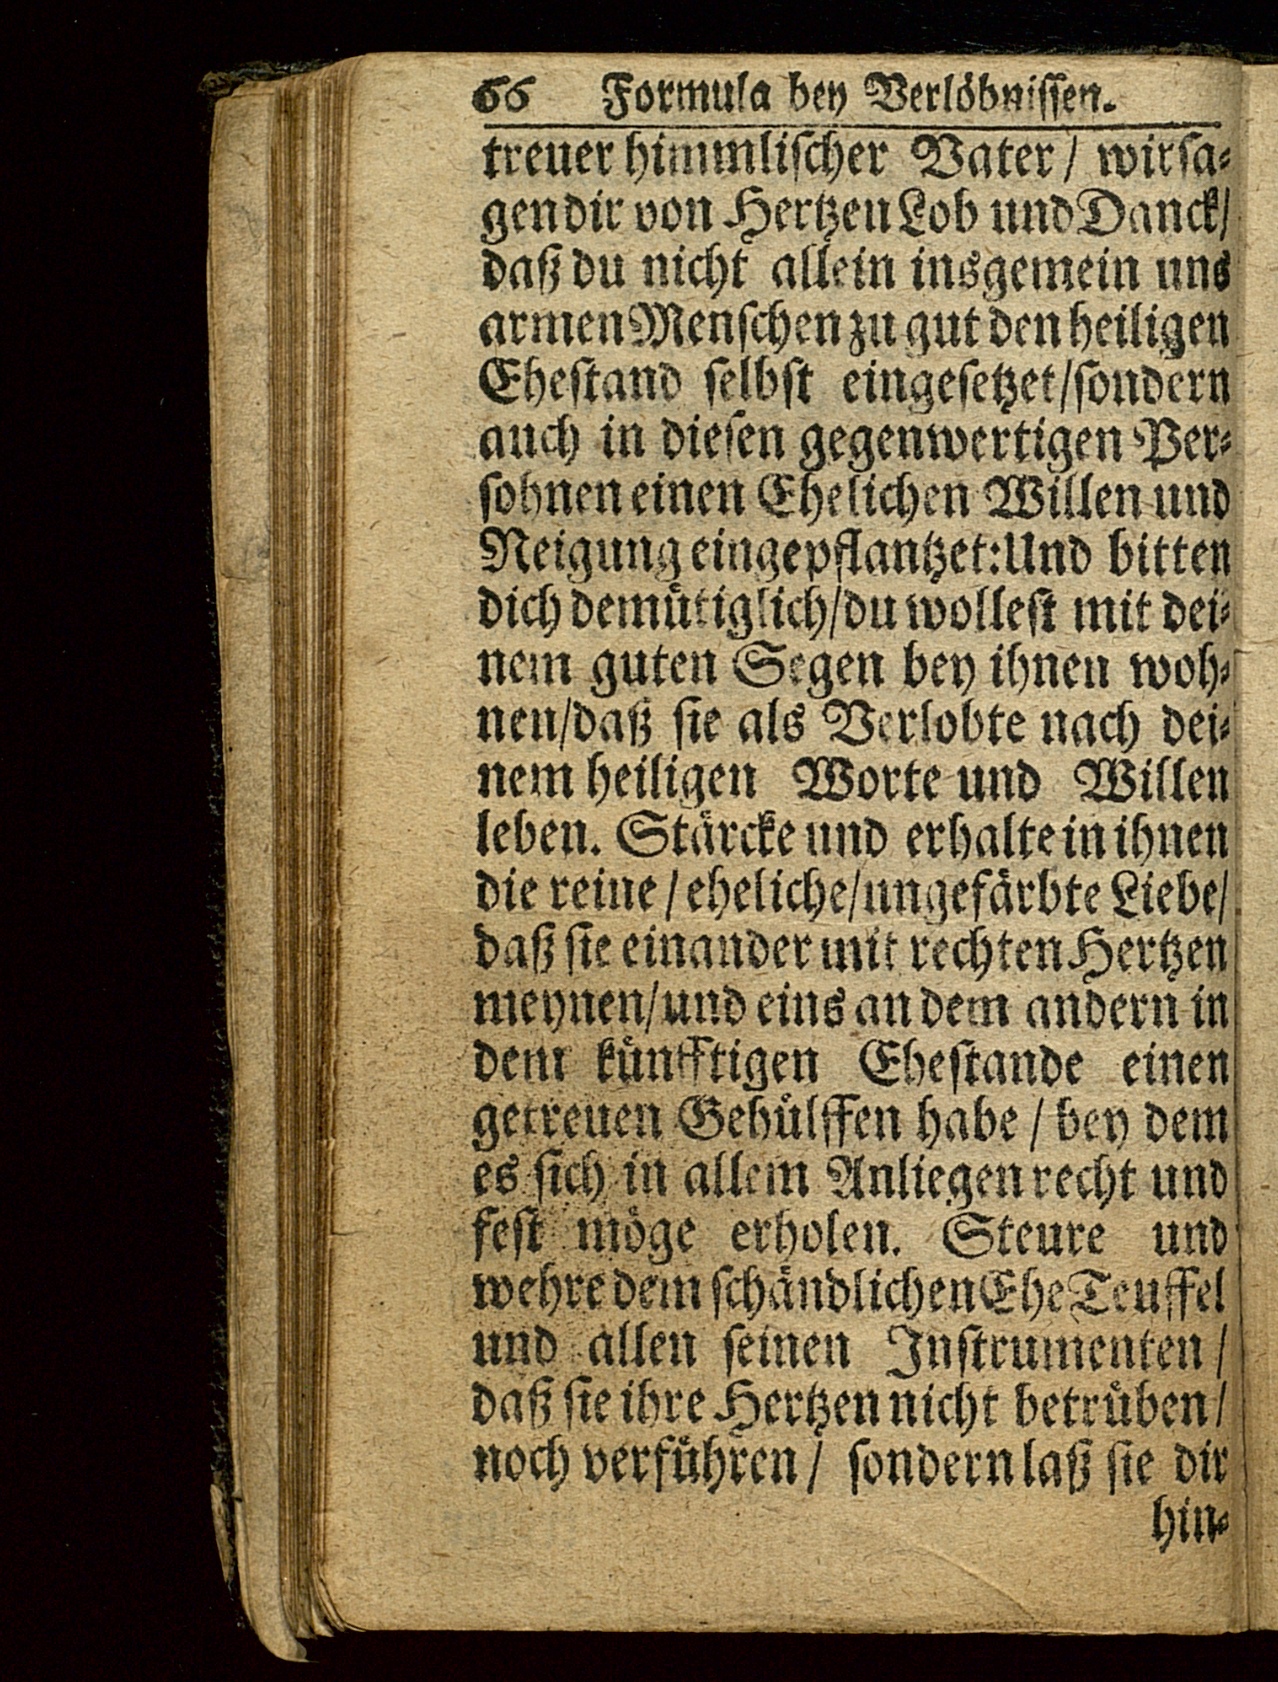 66 Formula bey Verlöbnissen.
treuer himmlischer Vater / wir sa-
gen dir von Hertzen Lob und Danck/
daß du nicht allein insgemein uns
armen Menschen zu gut den heiligen
Ehestand selbst eingesetzet/sondern
auch in diesen gegenwertigen Per-
sohnen einen Ehelichen Willen und
Neigung eingepflantzet: Und bitten
dich demütiglich/du wollest mit dei-
nem guten Segen bey ihnen woh-
nen/daß sie als Verlobte nach dei-
nem heiligen Worte und Willen
leben. Stärcke und erhalte in ihnen
die reine / eheliche/ungefärbte Liebe/
daß sie einander mit rechten Hertzen
meynen/und eins an dem andern in
dem künfftigen Ehestande einen
getreuen Gehülffen habe / bey dem
es sich in allem Anliegen recht und
fest möge erholen. Steure und
wehre dem schändlichen Ehe Teuffel
und allen seinen Instrumenten /
daß sie ihre Hertzen nicht betrüben/
noch verführen / sondern laß sie dir
hin-